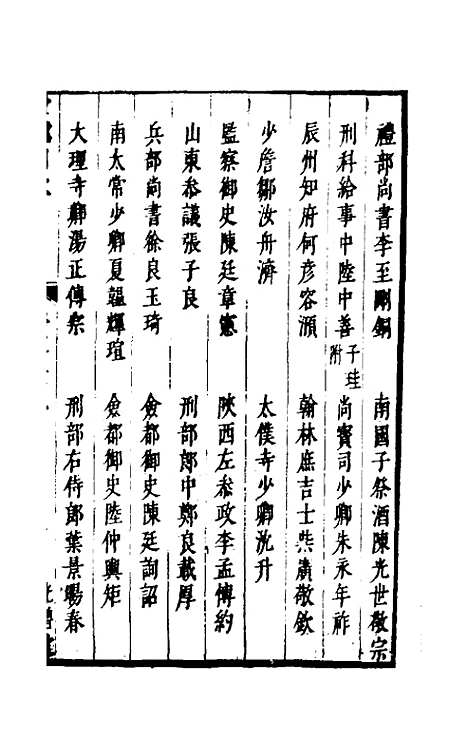 禮部尚書李至剛鋼　南國子祭酒陳光世敬宗
刑科給事中陸中善子珪附　尚寳司少卿朱永年祚
辰州知府何彥容源　翰林庶吉士柴廣敬欽
少詹鄒汝舟濟　太僕寺少卿沈升
監察御史陳廷章憲　陝西左叅政李孟傅約
山東叅議張子良　刑部郎中鄭良載厚
兵部尚書徐良玉琦　僉都御史陳廷詢詔
南太常少卿夏韞輝瑄　僉都御史陸仲興矩
大理寺卿湯正傳宗　刑部右侍郎葉景暘春